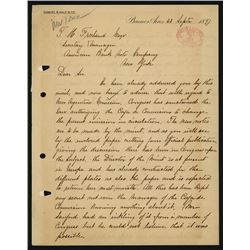 Buenos Aires 23 Sept 1897
T. H. Freeland Esqr
Secretary & Manager
American Bank Note Company
New York
Dear Sir
We have already addressed you by this
mail, and have now to advise that with regard to
New Argentine Currency, Congress has sanctioned the
law authorizing the Caja de Conversion to change
the present emission in circulation. The new notes
are to be made by the mint and as you will see
by the enclosed paper cutting from official publication,
giving the discussion there has been in Congress upon
the subject, the Director of the Mint is at present
in Europe and has already contracted for the
different plates as also the paper and is expected
to return here next month. All this has been kept
very secret not even the Manager of the Caja de
Conversion knowing anything about it. Your
had an inkling of it from a member of
Congress but he could not believe that it was
possible.